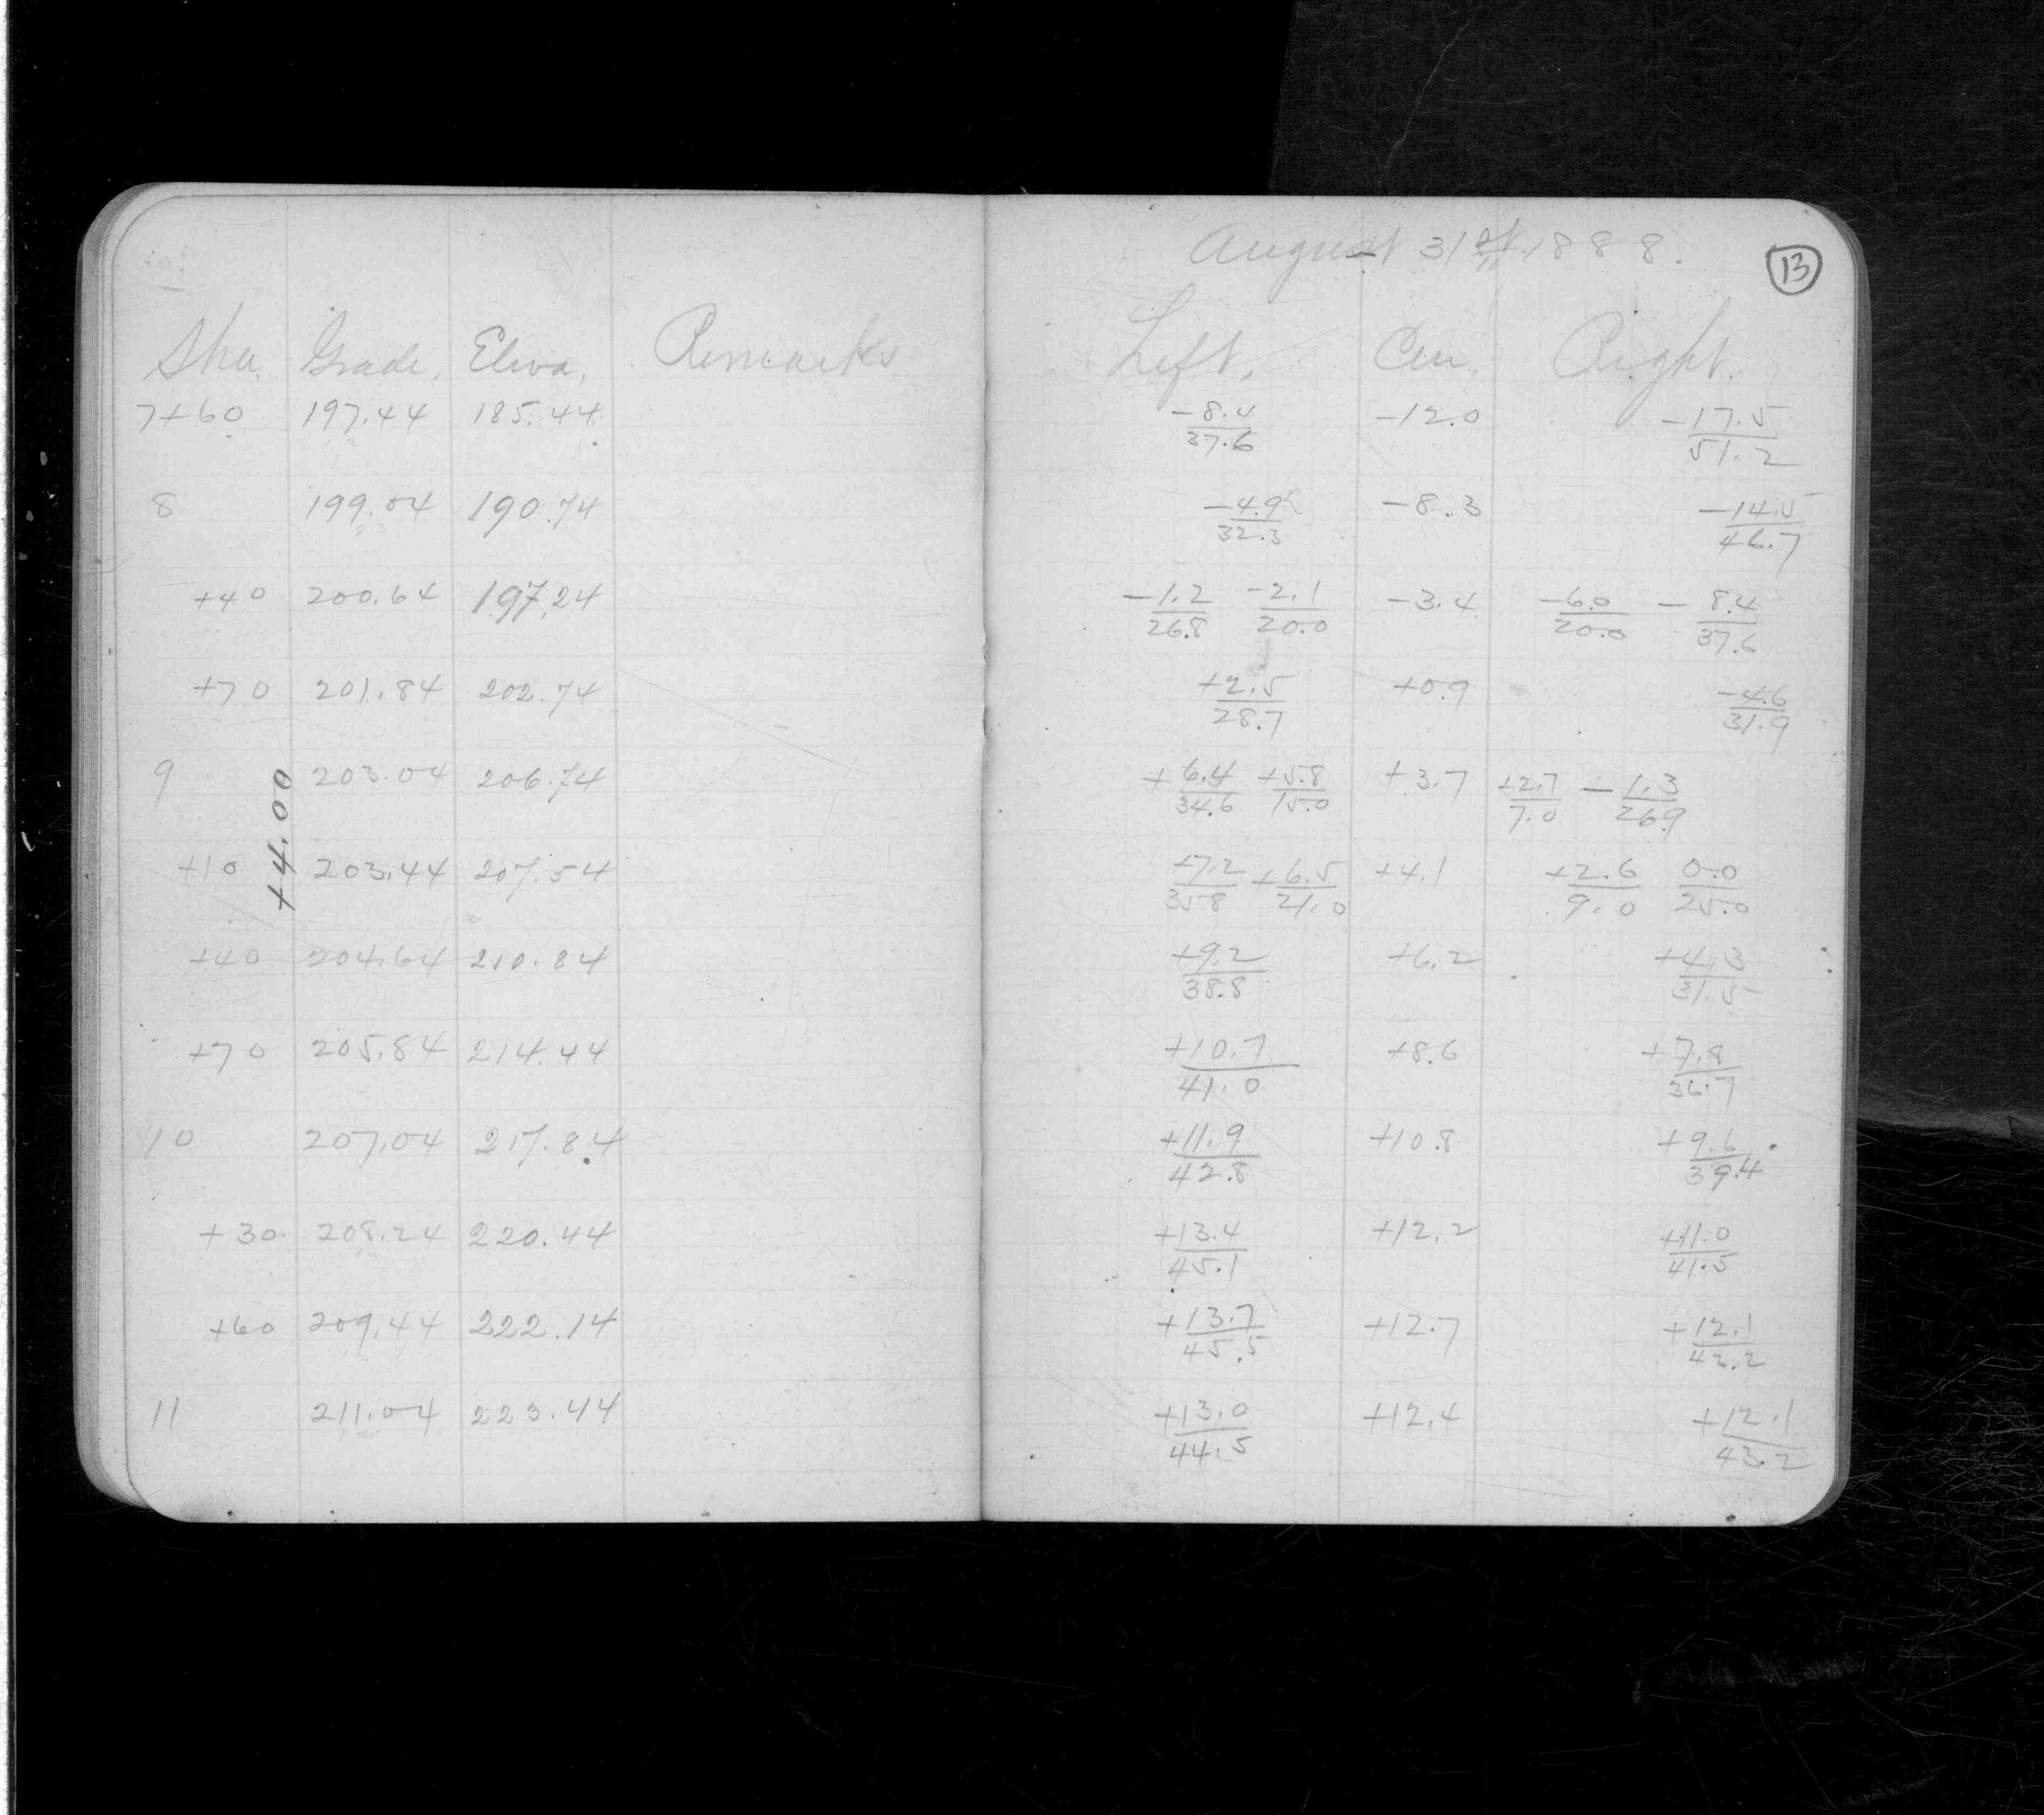 August 31st 1888. 13
Sta. Grade, Eleva, Remarks Left, Cen. Right.
7+60 197.44 185.44 -8.4/37.6 -12.0 -17.5/51.2
8 199.04 190.74 -4.9/32.3 -8.3 -14.5/46.7
+40 200.64 197.24 -1.2/26.8 -2.1/20.0 -3.4 -6.0/20.0 -8.4/37.6
+70 201.84 202.74 +2.5/28.7 +0.9 -4.6/31.9
9 203.04 206.74 +6.4/34.6 +5.8/15.0 +3.7 +2.7/7.0 -1.3/26.9
+4.00
+10 203.44 207.54 +7.2/35.8 +6.5/21.0 +4.1 +2.6/9.0 0.0/25.0
+40 204.64 210.84 +9.2/38.8 +6.2 +4.3/31.5
+70 205.84 214.44 +10.7/41.0 +8.6 +7.8/36.7
10 207.04 217.84 +11.9/42.8 +10.8 +9.6/39.4
+30 208.24 220.44 +13.4/45.1 +12.2 +11.0/41.5
+60 209.44 222.14 +13.7/45.5 +12.7 +12.1/43.2
11 211.04 223.44 +13.0/44.5 +12.4 +12.1/43.2